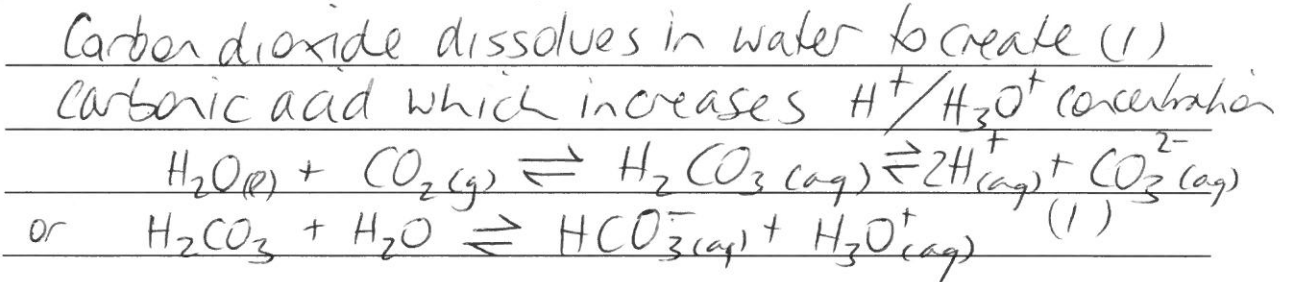 Carbon dioxide dissolves in water to create (1)
carbonic acid which increases H⁺/H₃O⁺ concentration
H₂O(l) + CO₂(g) ⇌ H₂CO₃(aq) ⇌ 2H⁺(aq) + CO₃²⁻(aq)
or H₂CO₃ + H₂O ⇌ HCO₃⁻(aq) + H₃O⁺(aq) (1)